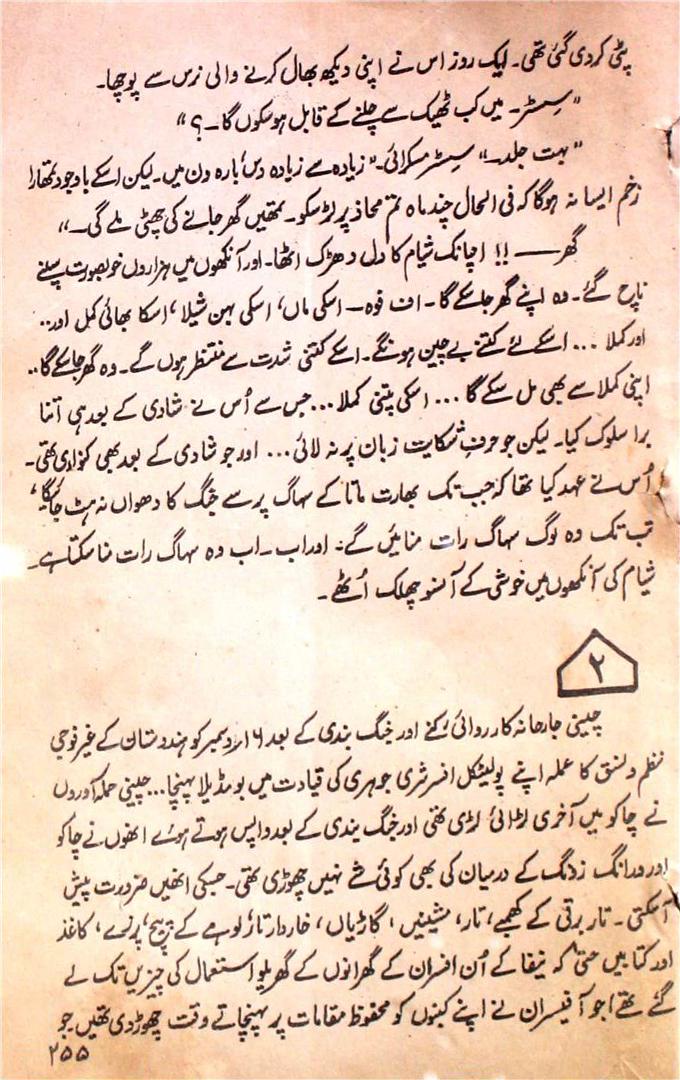 پٹی کر دی گئی تھی۔ ایک روز اس نے اپنی دیکھ بھال کرنے والی نرس سے پوچھا۔
"سسٹر۔ میں کب ٹھیک سے چلنے کے قابل ہو سکوں گا۔؟"
"بہت جلد۔" سسٹر مسکرائی۔ "زیادہ سے زیادہ دس، بارہ دن میں۔ لیکن اسکے باوجود تمھارا
زخم ایسا نہ ہوگا کہ فی الحال چند ماہ تم محاذ پر لڑ سکو۔ تمھیں گھر جانے کی چھٹی ملے گی۔"
گھر —— !! اچانک شیام کا دل دھڑک اٹھا۔ اور آنکھوں میں ہزاروں خوبصورت سپنے
ناچ گئے۔ وہ اپنے گھر جا سکے گا۔ اف فوہ — اسکی ماں، اسکی بہن شیلا، اسکا بھائی کمل اور..
اور کملا ... اسکے لئے کتنے بے چین ہونگے۔ اسکے کتنی شدت سے منتظر ہوں گے۔ وہ گھر جا سکے گا..
اپنی کملا سے بھی مل سکے گا ... اسکی پتنی کملا... جس سے اُس نے شادی کے بعد ہی اتنا
برا سلوک کیا۔ لیکن جو حرفِ شکایت زبان پر نہ لائی... اور جو شادی کے بعد بھی کنواری تھی۔
اُس نے عہد کیا تھا کہ جب تک بھارت ماتا کے سہاگ پر سے جنگ کا دھواں نہ ہٹ جائیگا،
تب تک وہ لوگ سہاگ رات منائیں گے۔ اور اب ۔ اب وہ سہاگ رات منا سکتا ہے۔
شیام کی آنکھوں میں خوشی کے آنسو چھلک اُٹھے۔
۲
چینی جارحانہ کارروائی رکنے اور جنگ بندی کے بعد ۱۶ دسمبر کو ہندوستان کے غیر فوجی
نظم و نسق کا عملہ اپنے پولیٹکل افسر شری جوہری کی قیادت میں بومڈیلا پہنچا... چینی حملہ آوروں
نے چاکو میں آخری لڑائی لڑی تھی اور جنگ بندی کے بعد واپس ہوتے ہوئے انھوں نے چاکو
اور ورانگ زدنگ کے درمیان کی بھی کوئی شے نہیں چھوڑی تھی۔ جسکی انھیں ضرورت پیش
آسکتی۔ تار برقی کے کھمبے، تار، مشینیں، گاڑیاں، خاردار تار، لوہے کے پیچ، پرزے، کاغذ
اور کتابیں حتیٰ کہ نیفا کے اُن افسران کے گھرانوں کے گھریلو استعمال کی چیزیں تک لے
گئے تھے، جو آفیسران نے اپنے کنبوں کو محفوظ مقامات پر پہنچاتے وقت چھوڑ دی تھیں جو
۲۵۵